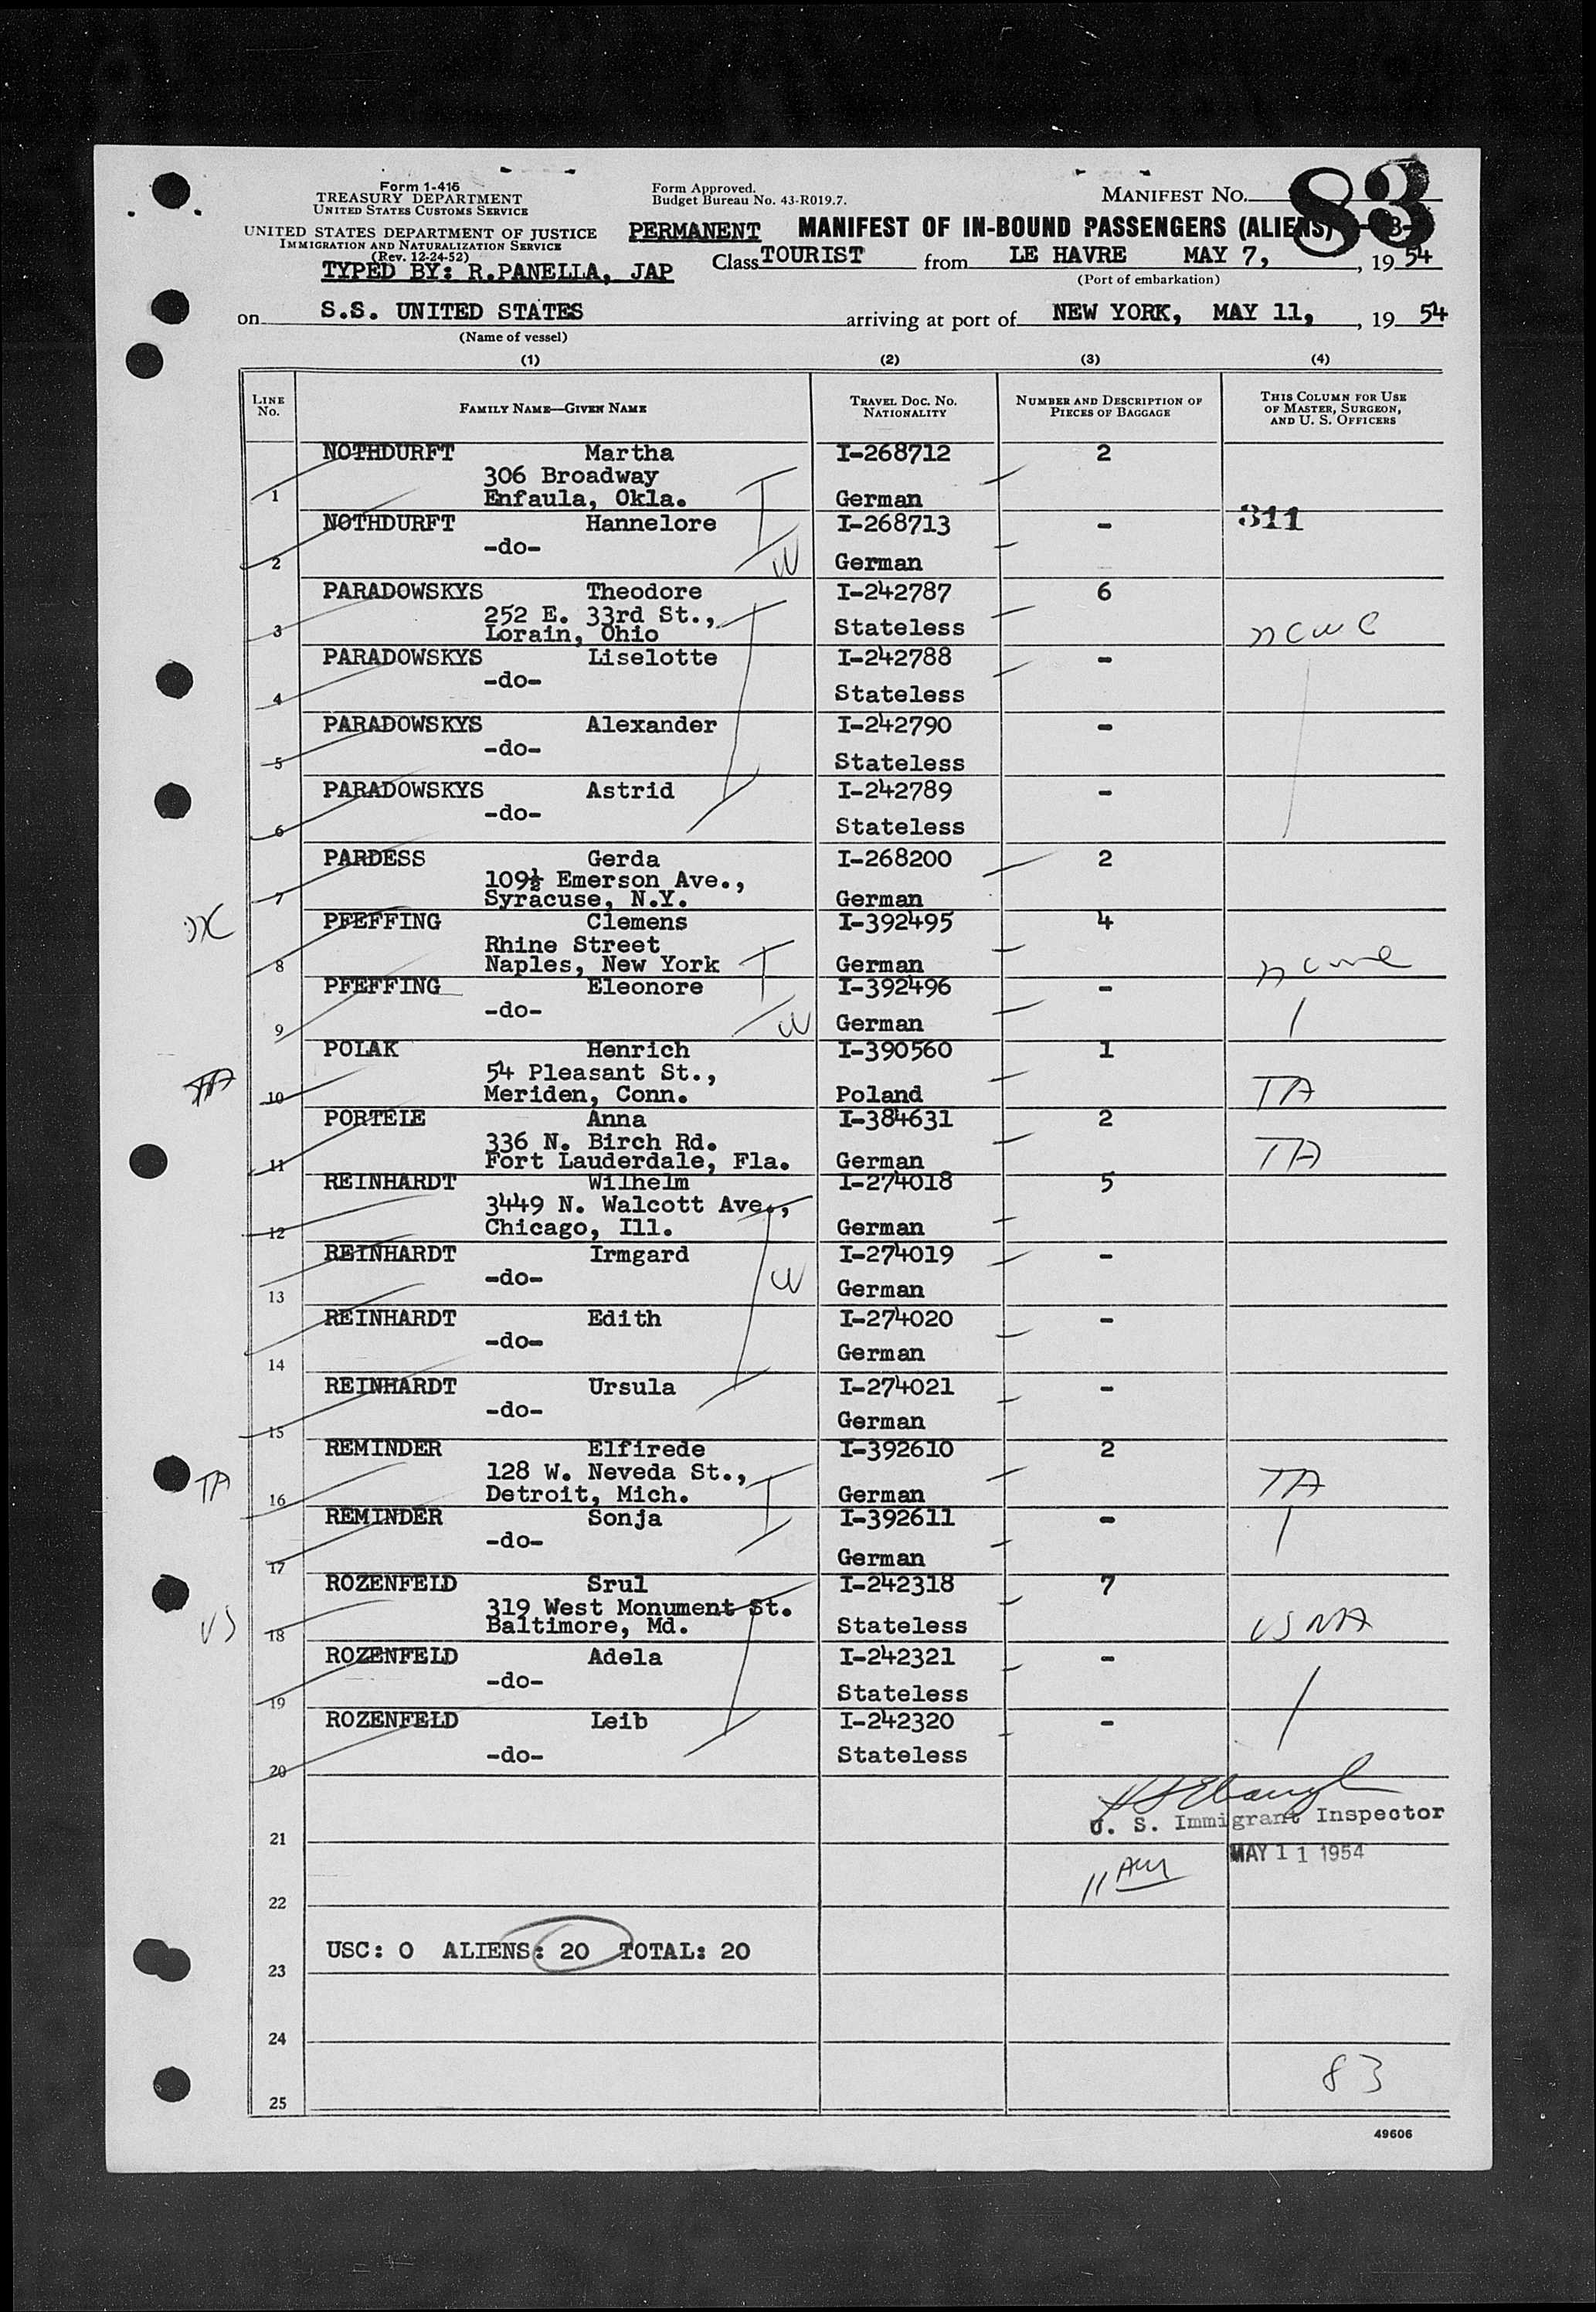 Form I-416
TREASURY DEPARTMENT
UNITED STATES CUSTOMS SERVICE
UNITED STATES DEPARTMENT OF JUSTICE
IMMIGRATION AND NATURALIZATION SERVICE
(Rev. 12-24-52)
TYPED BY: R.PANELLA, JAP
Form Approved.
Budget Bureau No. 43-R019.7.
MANIFEST NO. 83
PERMANENT MANIFEST OF IN-BOUND PASSENGERS (ALIENS)
Class TOURIST from LE HAVRE MAY 7, , 19 54
(Port of embarkation)
on S.S. UNITED STATES arriving at port of NEW YORK, MAY 11, , 19 54
(Name of vessel)
(1) (2) (3) (4)
LINE No. FAMILY NAME—GIVEN NAME TRAVEL DOC. NO. NATIONALITY NUMBER AND DESCRIPTION OF PIECES OF BAGGAGE THIS COLUMN FOR USE OF MASTER, SURGEON, AND U. S. OFFICERS
NOTHDURFT Martha I-268712 2
306 Broadway
1 Enfaula, Okla. German
NOTHDURFT Hannelore I-268713 - 311
-do-
2 W German
PARADOWSKYS Theodore I-242787 6
252 E. 33rd St.,
3 Lorain, Ohio Stateless ncwc
PARADOWSKYS Liselotte I-242788 -
-do-
4 Stateless
PARADOWSKYS Alexander I-242790 -
-do-
5 Stateless
PARADOWSKYS Astrid I-242789 -
-do-
6 Stateless
PARDESS Gerda I-268200 2
109½ Emerson Ave.,
7 Syracuse, N.Y. German
PFEFFING Clemens I-392495 4
Rhine Street
8 Naples, New York German ncwc
PFEFFING Eleonore I-392496 -
-do-
9 W German
POLAK Henrich I-390560 1
54 Pleasant St.,
TA 10 Meriden, Conn. Poland TA
PORTEIE Anna I-384631 2
336 N. Birch Rd.
11 Fort Lauderdale, Fla. German TA
REINHARDT Wilhelm I-274018 5
3449 N. Walcott Ave.,
12 Chicago, Ill. German
REINHARDT Irmgard I-274019 -
-do- W
13 German
REINHARDT Edith I-274020 -
-do-
14 German
REINHARDT Ursula I-274021 -
-do-
15 German
REMINDER Elfirede I-392610 2
128 W. Neveda St.,
TA 16 Detroit, Mich. German TA
REMINDER Sonja I-392611 -
-do-
17 German
ROZENFELD Srul I-242318 7
319 West Monument St.
US 18 Baltimore, Md. Stateless USNA
ROZENFELD Adela I-242321 -
-do-
19 Stateless
ROZENFELD Leib I-242320 -
-do-
20 Stateless
U. S. Immigrant Inspector
21
MAY 11 1954
11 AM
22
USC: 0 ALIENS: 20 TOTAL: 20
23
24
83
25
49606